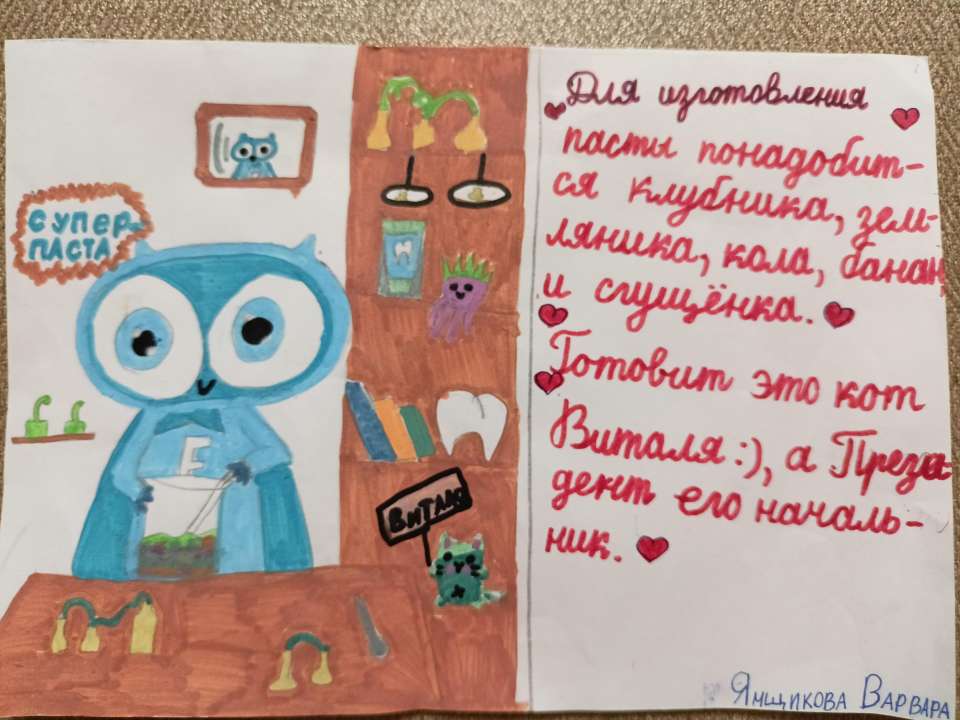 СУПЕР-
ПАСТА
Е
ВИТАЛЯ
Для изготовления
пасты понадобит-
ся клубника, зем-
ляника, кола, банан,
и сгущёнка.
Готовит это кот
Виталя :), а Прези-
дент его началь-
ник.
Ямщикова Варвара